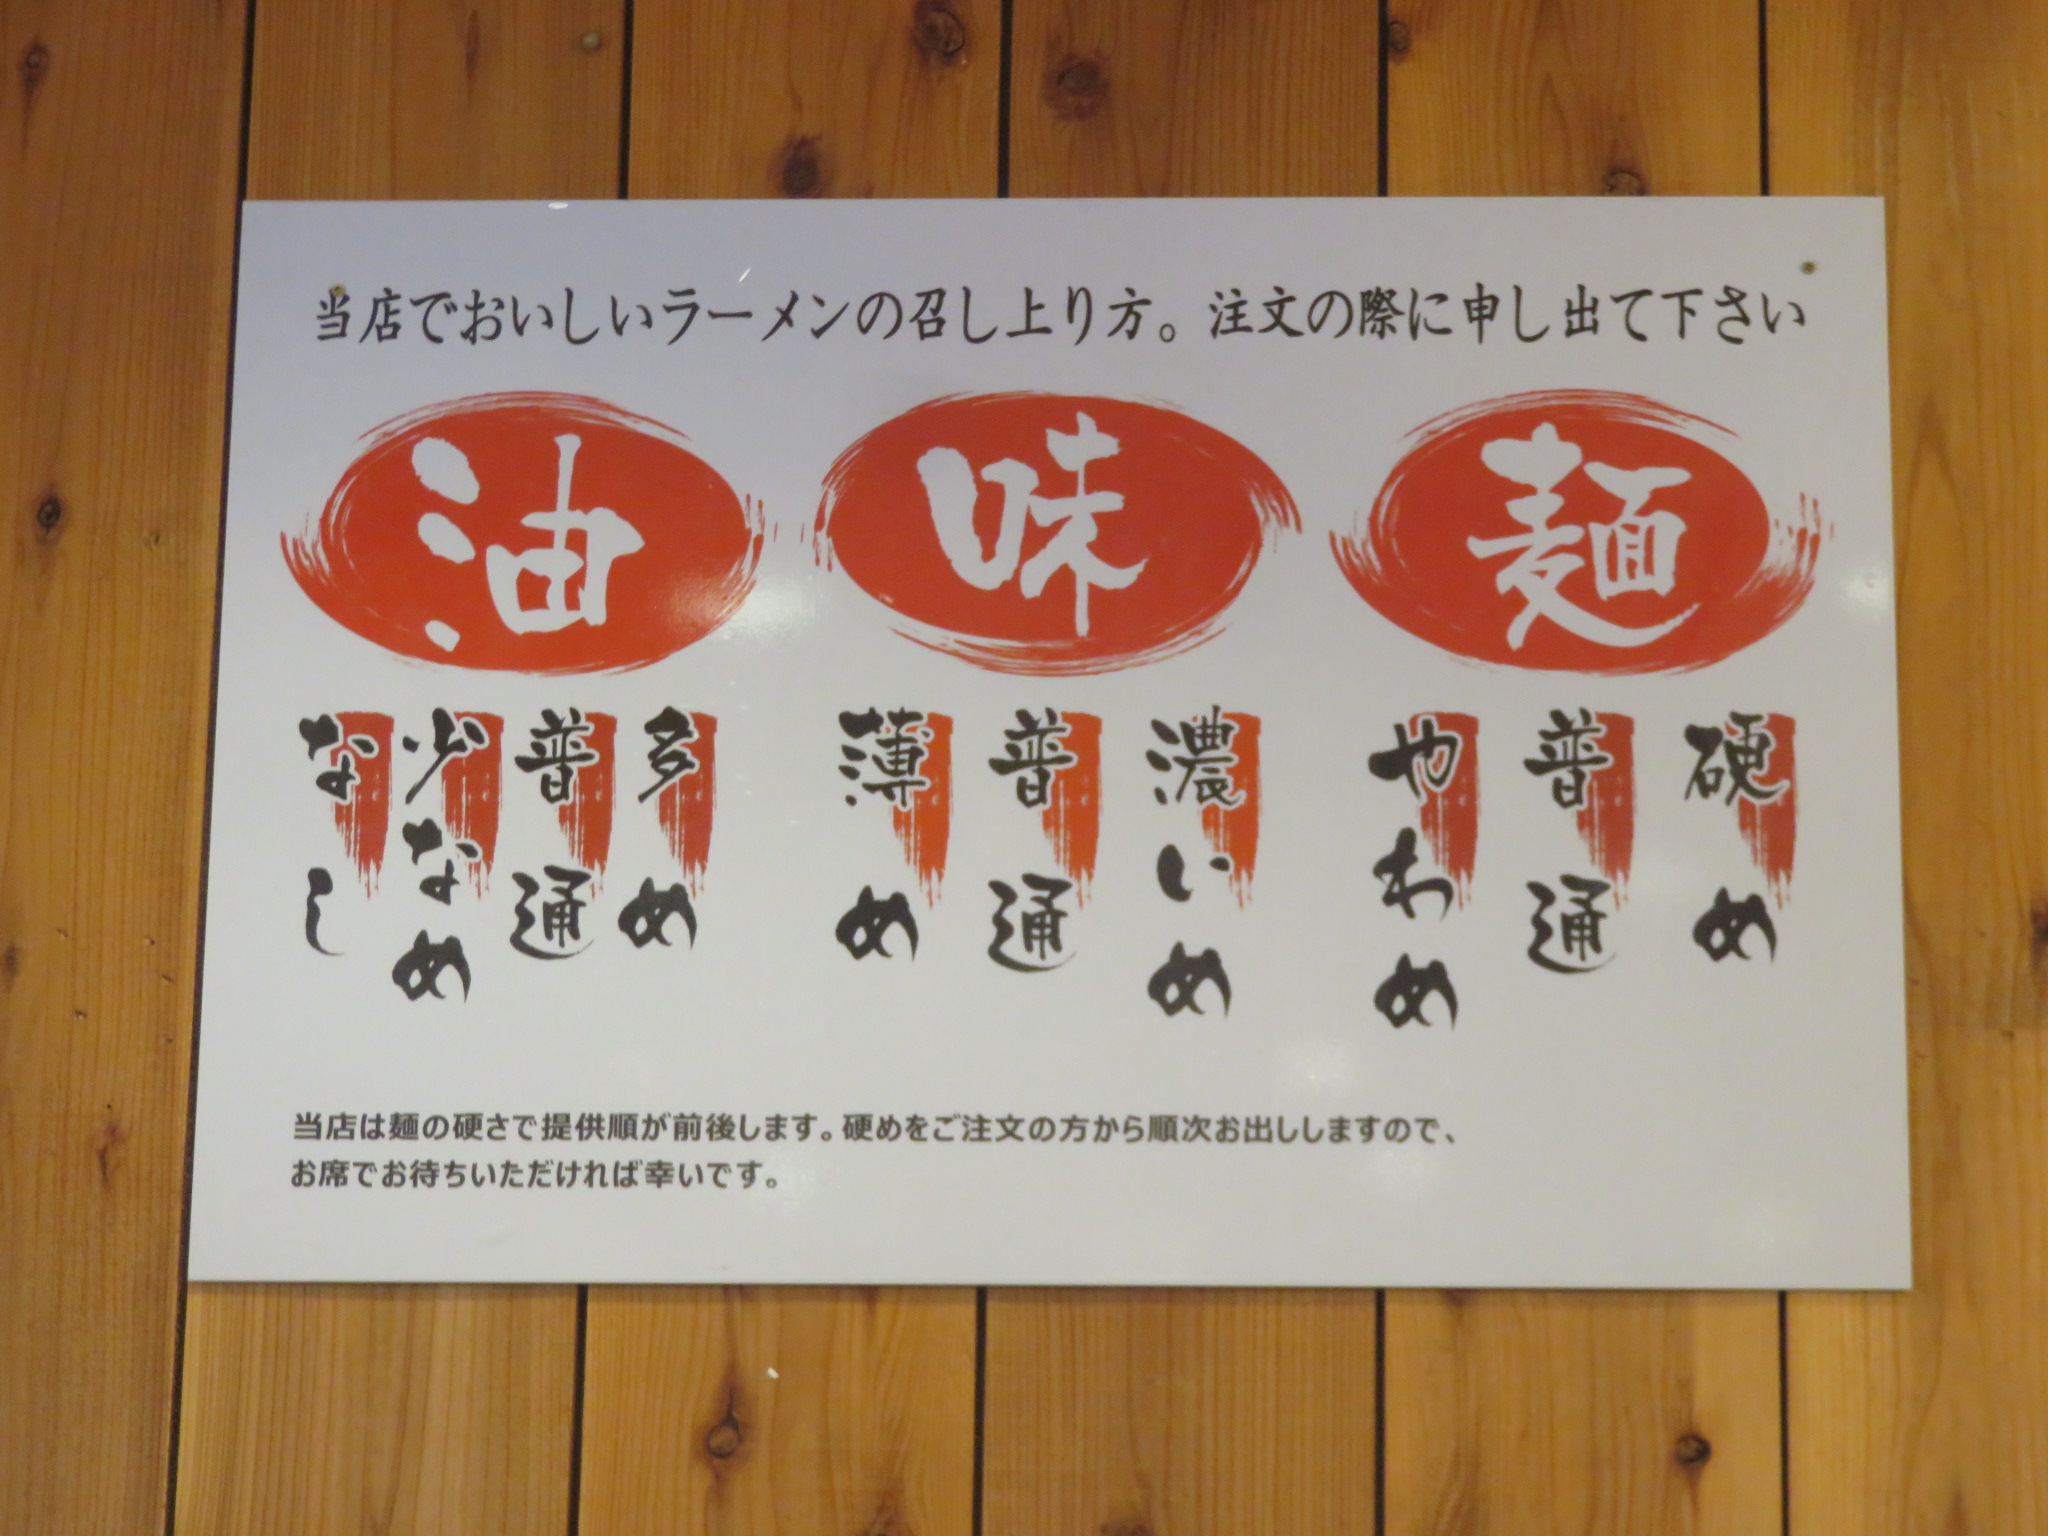 当店でおいしいラーメンの召し上り方。注文の際に申し出て下さい
麺
硬め
普通
やわめ
味
濃いめ
普通
薄め
油
多め
普通
少なめ
なし
当店は麺の硬さで提供順が前後します。硬めをご注文の方から順次お出ししますので、
お席でお待ちいただければ幸いです。